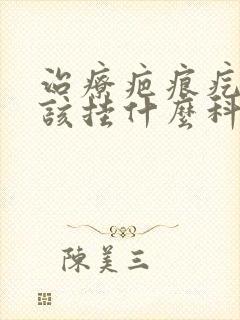 治療疤痕疙
該挂什麼科
陳美三